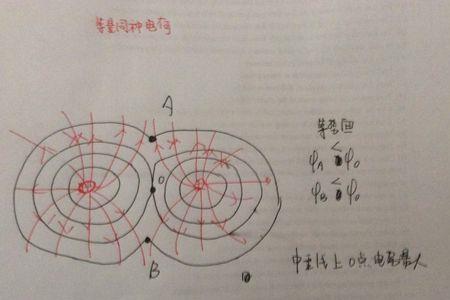 等量同种电荷
A
O
B
等势面
φA < φ0
φB < φ0
中垂线上O点电势最大